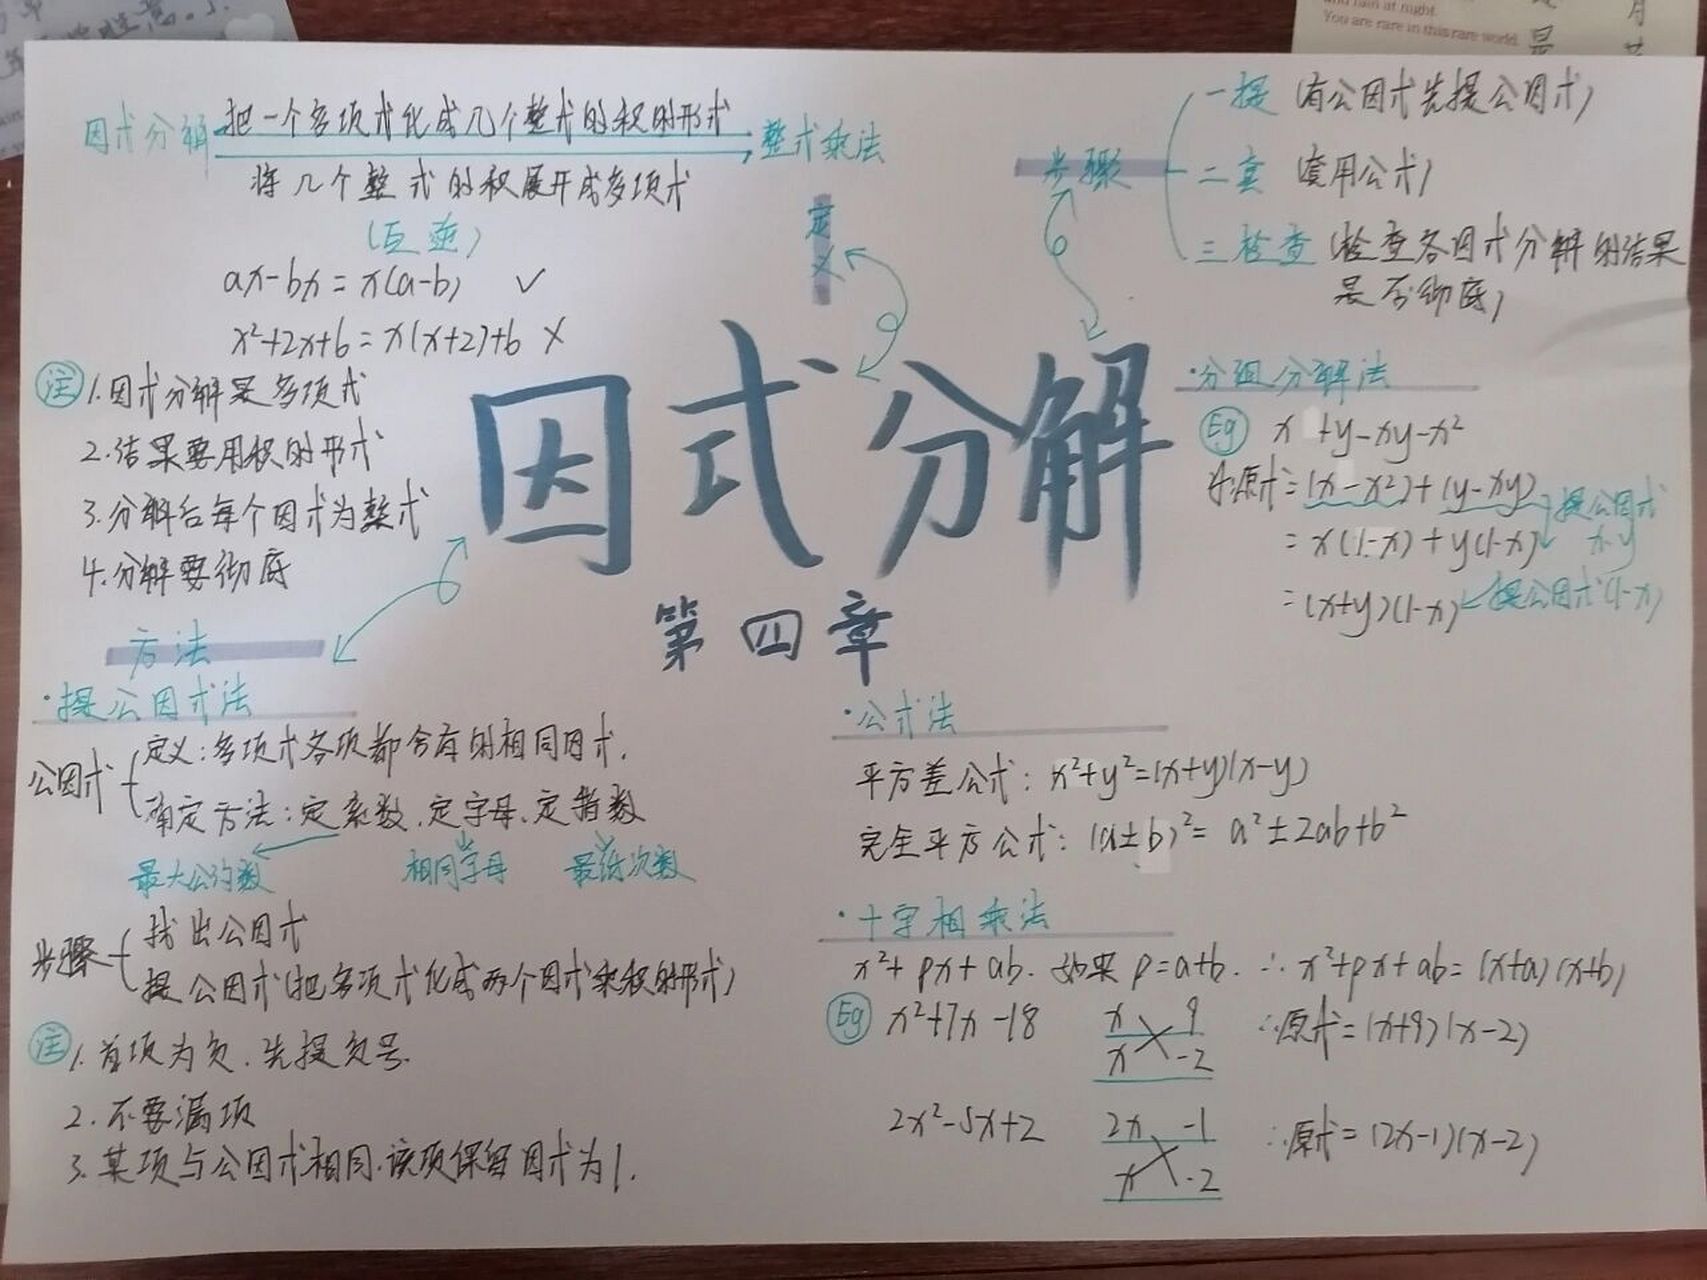 因式分解
把一个多项式化成几个整式的积的形式
整式乘法
将几个整式的积展开成多项式
(互逆)
ax-bx=x(a-b) ✓
x²+2x+6=x(x+2)+6 ×
注 1.因式分解是多项式
2.结果要用积的形式
3.分解后每个因式为整式
4.分解要彻底
定义
步骤
一提 (有公因式先提公因式)
二套 (套用公式)
三检查 (检查各因式分解的结果
是否彻底)
因式分解
第四章
方法
·提公因式法
公因式
定义:多项式各项都含有的相同因式.
确定方法:定系数.定字母.定指数
最大公约数 相同字母 最低次数
步骤
找出公因式
提公因式(把多项式化成两个因式乘积的形式)
注 1.首项为负.先提负号.
2.不要漏项
3.某项与公因式相同.该项保留因式为1.
·分组分解法
Eg x+y-xy-x²
原式=(x-x²)+(y-xy)
提公因式
=x(1-x)+y(1-x)
x.y
=(x+y)(1-x)
提公因式(1-x)
·公式法
平方差公式: x²+y²=(x+y)(x-y)
完全平方公式: (a±b)²=a²±2ab+b²
·十字相乘法
x²+px+ab. 如果 p=a+b. ∴ x²+px+ab=(x+a)(x+b)
Eg x²+7x-18
x 9
x -2
∴原式=(x+9)(x-2)
2x²-5x+2
2x -1
x -2
∴原式=(2x-1)(x-2)
and rain at night.
You are rare in this rare world.